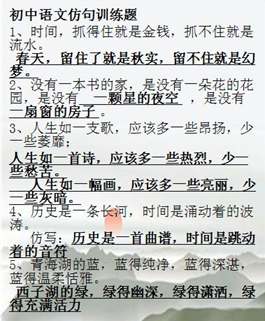 初中语文仿句训练题
1、时间，抓得住就是金钱，抓不住就是
流水。
春天，留住了就是秋实，留不住就是幻
梦。
2、没有一本书的家，是没有一朵花的花
园，是没有 一颗星的夜空 ，是没有
一扇窗的房子。
3、人生如一支歌，应该多一些昂扬，少
一些萎靡；
人生如一首诗，应该多一些热烈，少一
些愁苦。
人生如一幅画，应该多一些亮丽，少
一些灰暗。
4、历史是一条长河，时间是涌动着的波
涛。
仿写：历史是一首曲谱，时间是跳动
着的音符
5、青海湖的蓝，蓝得纯净，蓝得深湛，
蓝得温柔恬雅。
西子湖的绿，绿得幽深，绿得潇洒，绿
得充满活力